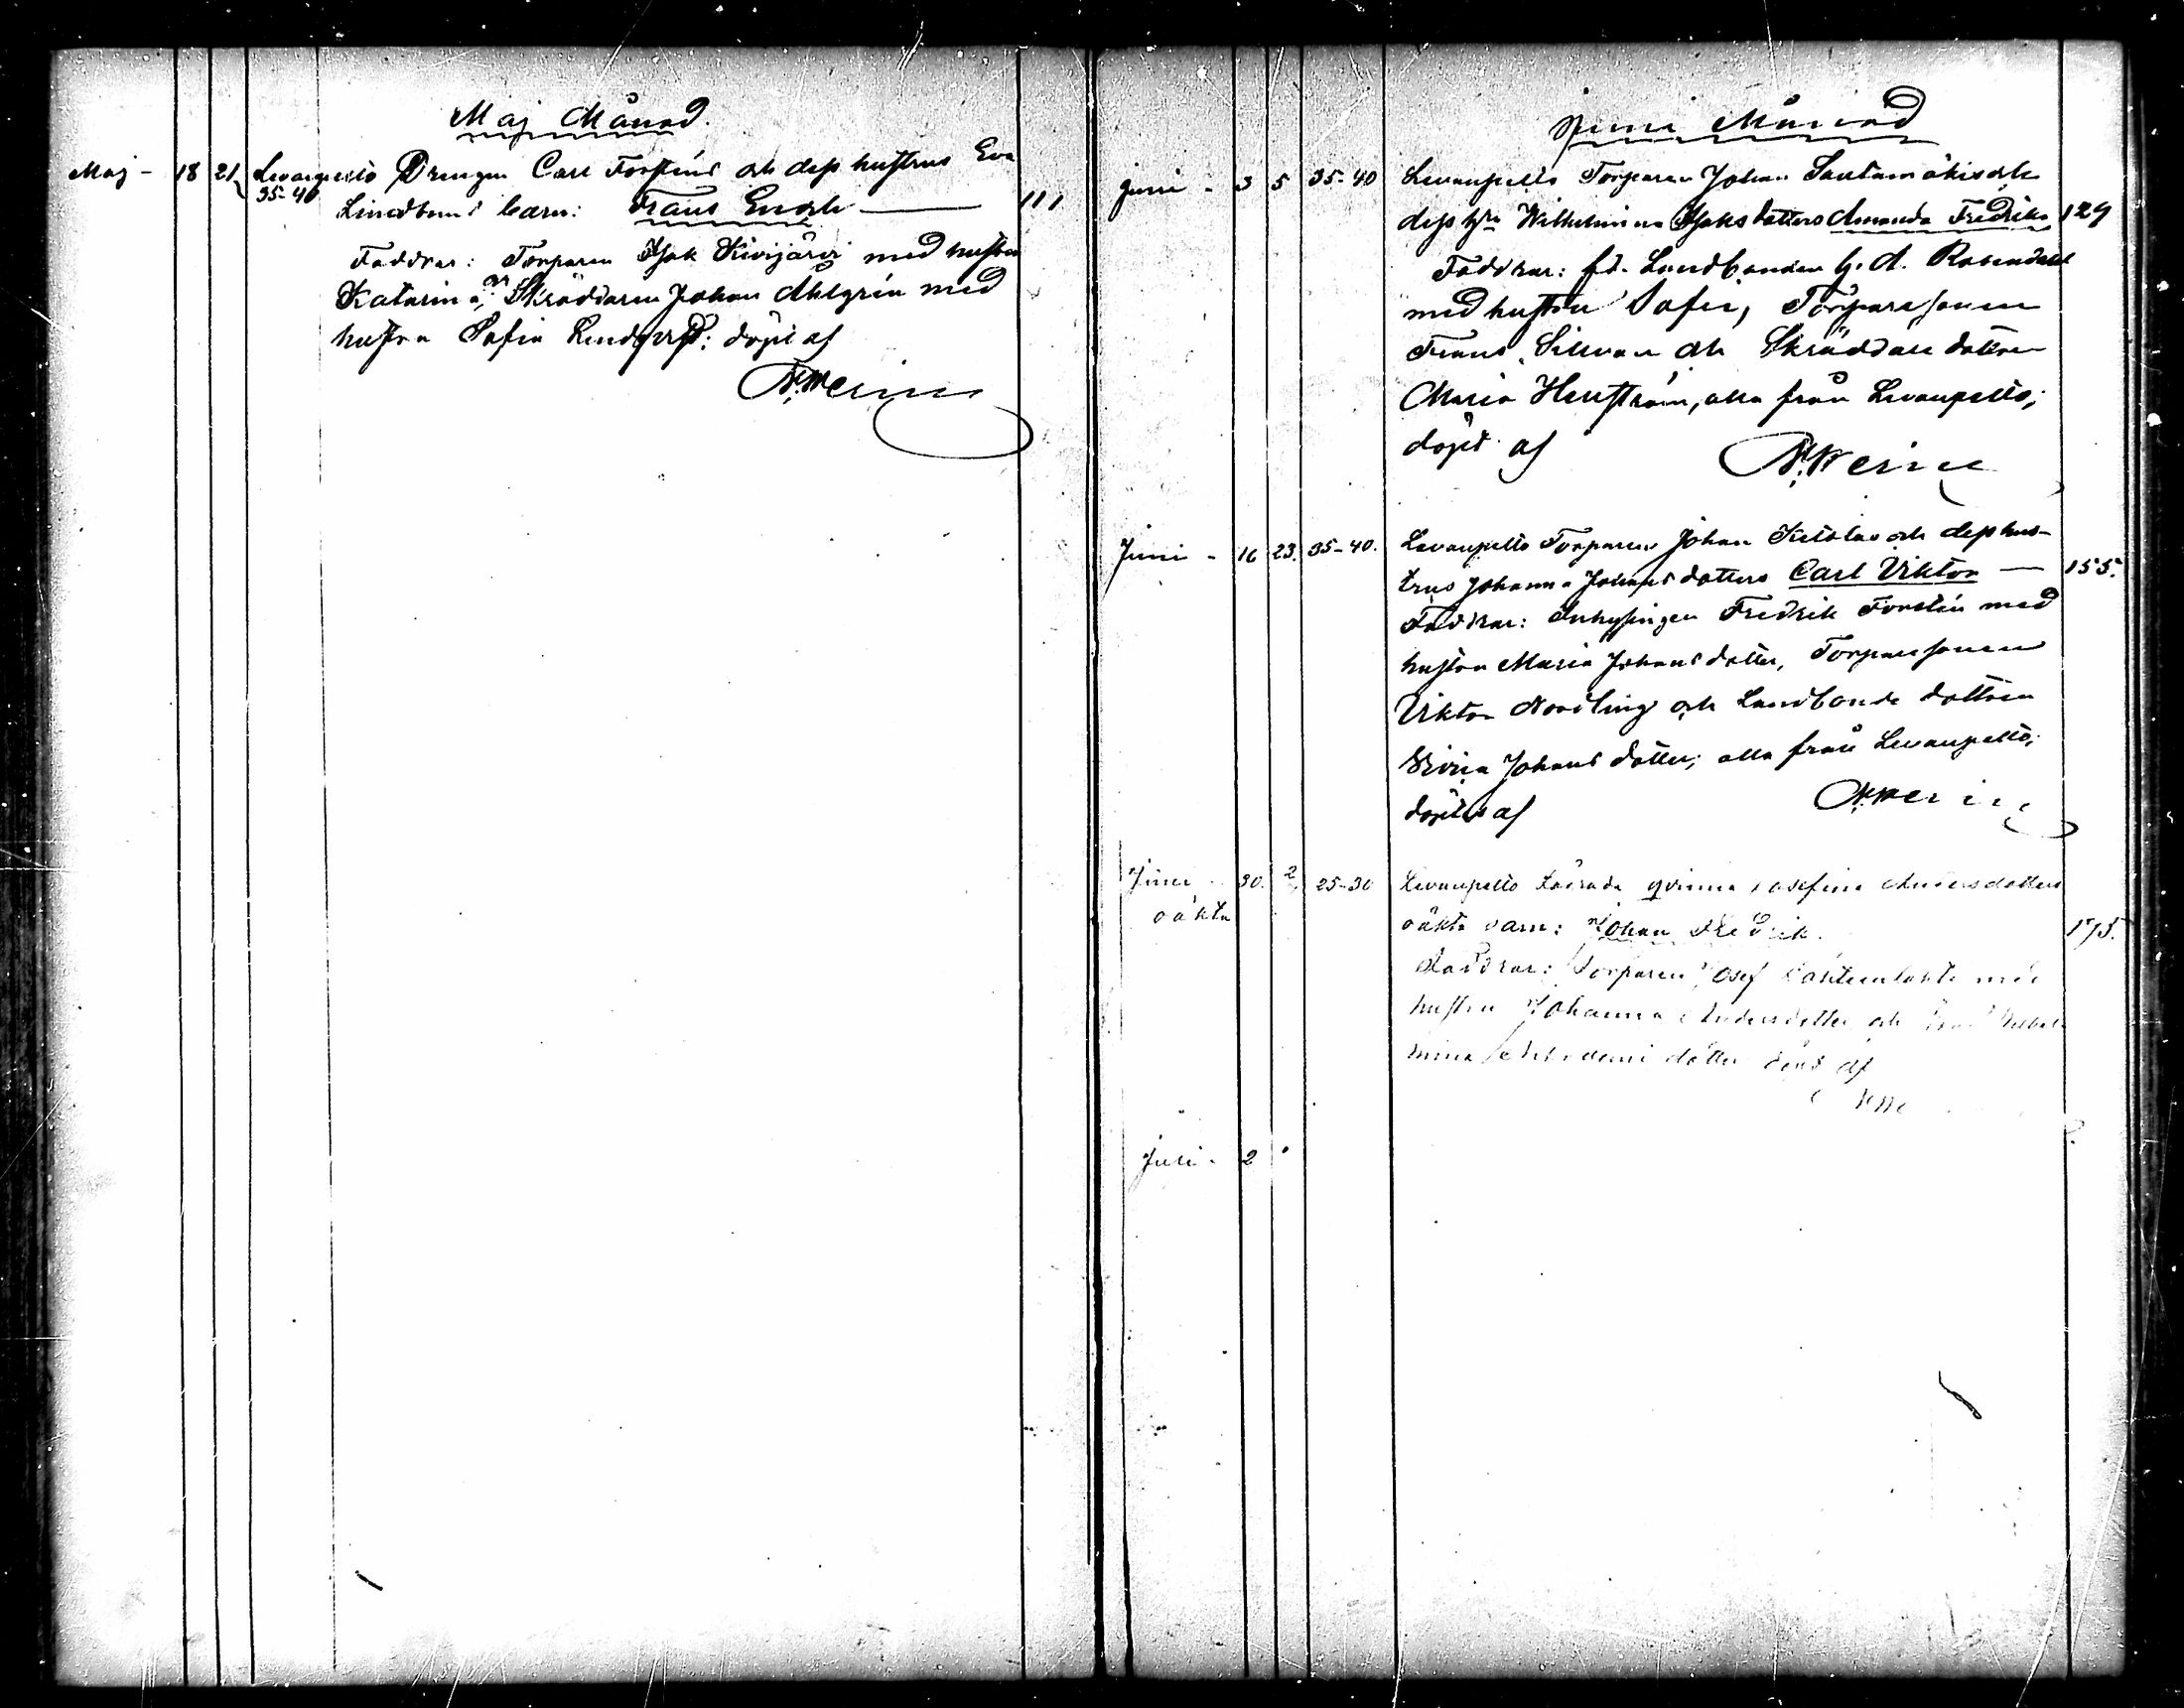 Maj Månad.
Maj - 18 21 Levanpelto Drengen Carl Forsténs och dess hustrus Eva
35-40 Lindboms barn: Frans Enok — 111
Faddrar: Torparen Isak Kivijärvi med hustru
Katarina, Skräddaren Johan Ahlgrén med
hustru Sofia Lindqvist; döpt af
Juni Månad
Juni - 3 5 35-40 Levanpelto Torparen Johan Santamäkis och
dess h:u Wilhelmina Isaks dotters Amanda Fredrika 129
Faddrar: f.d. Landbonden G. A. Rosendahl
med hustru Sofia, Torparesonen
Frans Silvan och Skräddare dottren
Maria Hellström, alla från Levanpelto;
döpt af
Juni - 16 23. 35-40. Levanpelto Torparen Johan Ketolas och dess hus-
trus Johanna Johans dotters Carl Viktor — 155.
Faddrar: Inhysingen Fredrik Forstén med
hustru Maria Johans dotter, Torparesonen
Viktor Nordling och Landbonde dottren
Johans dotter; alla från Levanpelto;
döptes af
Juni 30. 2 25-30 Levanpelto qvinna Josefina Andersdotters
oäkta oäkta barn: Johan Fredrik. 175.
Faddrar: Torparen Josef med
hustru Johanna Andersdotter och
mina dotter döpt af
Juli - 2